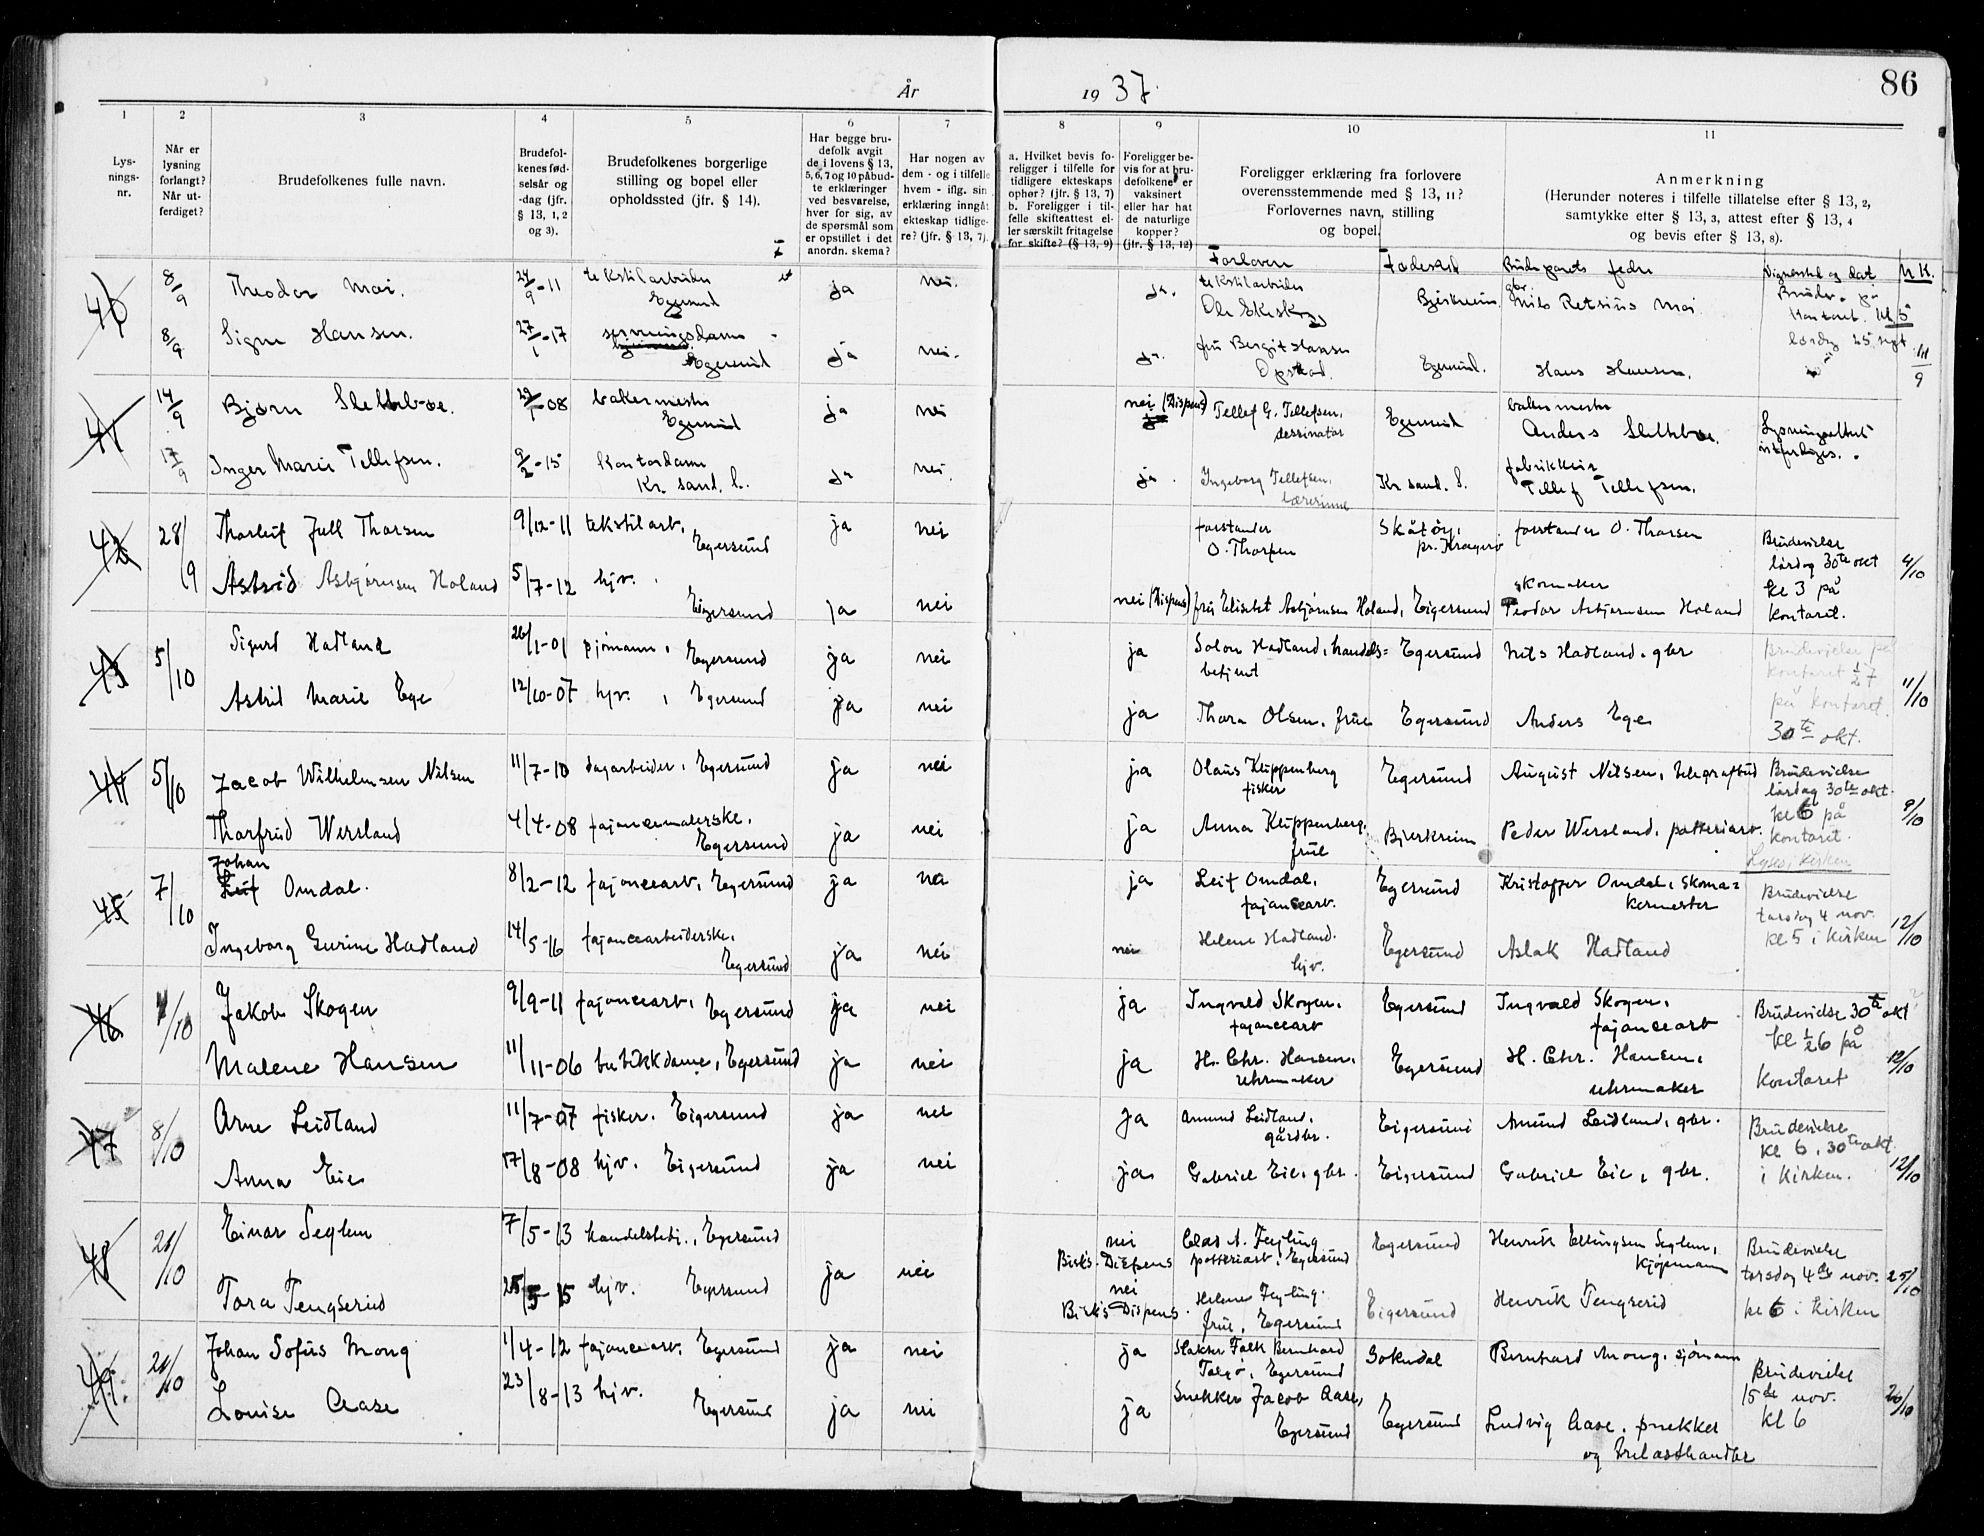 År 1937.
86
1 2 3 4 5 6 7 8 9 10 11
Lys-
nings-
nr.
Når er
lysning
forlangt?
Når ut-
ferdiget?
Brudefolkenes fulle navn.
Brudefol-
kenes fød-
selsår og
-dag (jfr.
§ 13, 1, 2
og 3).
Brudefolkenes borgerlige
stilling og bopel eller
opholdssted (jfr. § 14).
Har begge bru-
defolk avgit
de i lovens § 13,
5, 6, 7 og 10 påbud-
te erklæringer
ved besvarelse,
hver for sig, av
de spørsmål som
er opstillet i det
anordn. skema?
Har nogen av
dem - og i tilfelle
hvem - iflg. sin
erklæring inngåt
ekteskap tidlige-
re? (jfr. § 13, 7).
a. Hvilket bevis fo-
religger i tilfelle for
tidligere ekteskaps
ophør? (jfr. § 13, 7)
b. Foreligger i til-
felle skifteattest el-
ler særskilt fritagelse
for skifte? (§ 13, 9)
Foreligger be-
vis for at bru-
defolkene er
vaksinert
eller har hat
de naturlige
kopper?
(jfr. § 13, 12)
Foreligger erklæring fra forlovere
overensstemmende med § 13, 11?
Forlovernes navn, stilling
og bopel.
Anmerkning
(Herunder noteres i tilfelle tillatelse efter § 13, 2,
samtykke efter § 13, 3, attest efter § 13, 4
og bevis efter § 13, 8).
Forlovere Fødested Brudeparets fedre Vigselssted og dat N.K.
40 8/9 Theodor Moi. 24/9-11 tekstilarbeider Egersund ja nei. ja. tekstilarbeider Bjerkreim gbr. Nils Retsius Moi
8/9 Signe Hansen. 27/1-17 serveringsdame Egersund ja nei. ja. fru Bergit Hansen Opstad. Egersund. Hans Hansen.
Brudev. på
Kontoret. kl 5
lørdag 25 sept.
41 14/9 Bjørn Slettebøe. 29/1-08 bakermester Egersund ja nei nei (Dispens) Tellef G. Tellefsen, dessinatør Egersund bakermester Anders Slettebøe.
17/9 Inger Marie Tellefsen. 9/2-15 Kontordame Kr. sand. S. ja nei. ja. Ingeborg Tellefsen, lærerinne Kr sand. S. fabrikkeier Tellef Tellefsen.
Lysningsattest
utferdiges.
42 28/9 Thorleif Jull Thorsen 9/12-11 tekstilarb. Egersund ja nei forstander O. Thorsen Skåtøy, pr. Kragerø forstander O. Thorsen
Astrid Asbjørnsen Holand 5/7-12 hjv. Eigersund ja nei nei (Dispens) fru Elisabet Asbjørnsen Holand, Eigersund skomaker Teodor Asbjørnsen Holand
Brudevielse
lørdag 30te okt
kl 3 på
kontoret.
4/10
43 5/10 Sigurd Hadland 26/1-01 sjømann, Egersund ja nei ja Solon Hadland, handels=betjent Egersund Nils Hadland. gbr
Astrid Marie Ege 12/10-07 hjv., Egersund ja nei ja Thora Olsen, frue Egersund Anders Ege
Brudevielse på
kontoret ½7
på kontoret.
30te okt.
11/10
44 5/10 Jacob Wilhelmsen Nilsen 11/7-10 dagarbeider, Egersund ja nei ja Olaus Kluppenberg fisker Egersund August Nilsen, telegrafbud
Thorfrid Wersland 4/4-08 fajansemalerske, Egersund ja nei ja Anna Kluppenberg, frue Bjerkreim Peder Wersland, potteriarb.
Brudevielse
lørdag 30te okt.
kl 6 på
kontoret.
9/10
Lyses i kirken
45 7/10 Johan Leif Omdal. 8/2-12 fajancearb., Egersund ja nei ja Leif Omdal, fajancearb. Egersund Kristoffer Omdal, Skoma=kermester
Ingeborg Gurine Hadland 14/5-16 fajancearbeiderske, Egersund ja nei nei Helene Hadland. hjv. Egersund Aslak Hadland
Brudevielse
torsdag 4 nov.
kl 5 i kirken
12/10
46 7/10 Jakob Skogen 9/9-11 fajancearb., Egersund ja nei ja Ingvald Skogen, fajancearb Egersund Ingvald Skogen, fajancearb
Malene Hansen 11/11-06 butikkdame, Egersund ja nei ja H. Chr. Hansen, uhrmaker Egersund H. Chr. Hansen, uhrmaker
Brudevielse 30te okt
kl ½6 på
kontoret
12/10
47 8/10 Arne Leidland 11/7-07 fisker. Eigersund ja nei ja Amund Leidland, gårdbr. Eigersund Amund Leidland, gbr.
Anna Eie 17/8-08 hjv. Eigersund ja nei ja Gabriel Eie, gbr. Eigersund Gabriel Eie, gbr.
Brudevielse
kl 6, 30te okt.
i kirken.
12/10
48 21/10 Einar Seglem 7/5-13 handelsbetj., Egersund ja nei nei Bisk's Dispens Clas A. Fejling potteriarb, Egersund Egersund Henrik Ellingsen Seglem, Kjøpmann
Tora Tengsereid 25/5-15 hjv. Egersund nei Bisk's Dispens. Helene Fejling. frue, Egersund Eigersund Henrik Tengsereid
Brudevielse
torsdag 4de nov.
kl 6 i kirken
25/10
49. 21/10 Johan Sofus Mong 1/4-12 fajancearb. Egersund ja nei ja Slakter Falk Bernhard Talgø, Egersund Sokndal Bernhard Mong, sjømann
Louise Aase 23/8-13 hjv. Egersund ja nei ja Snekker Jacob Aase, Egersund Egersund Ludvig Aase, snekker og trelasthandler
Brudevielse
15de nov.
kl 6
26/10